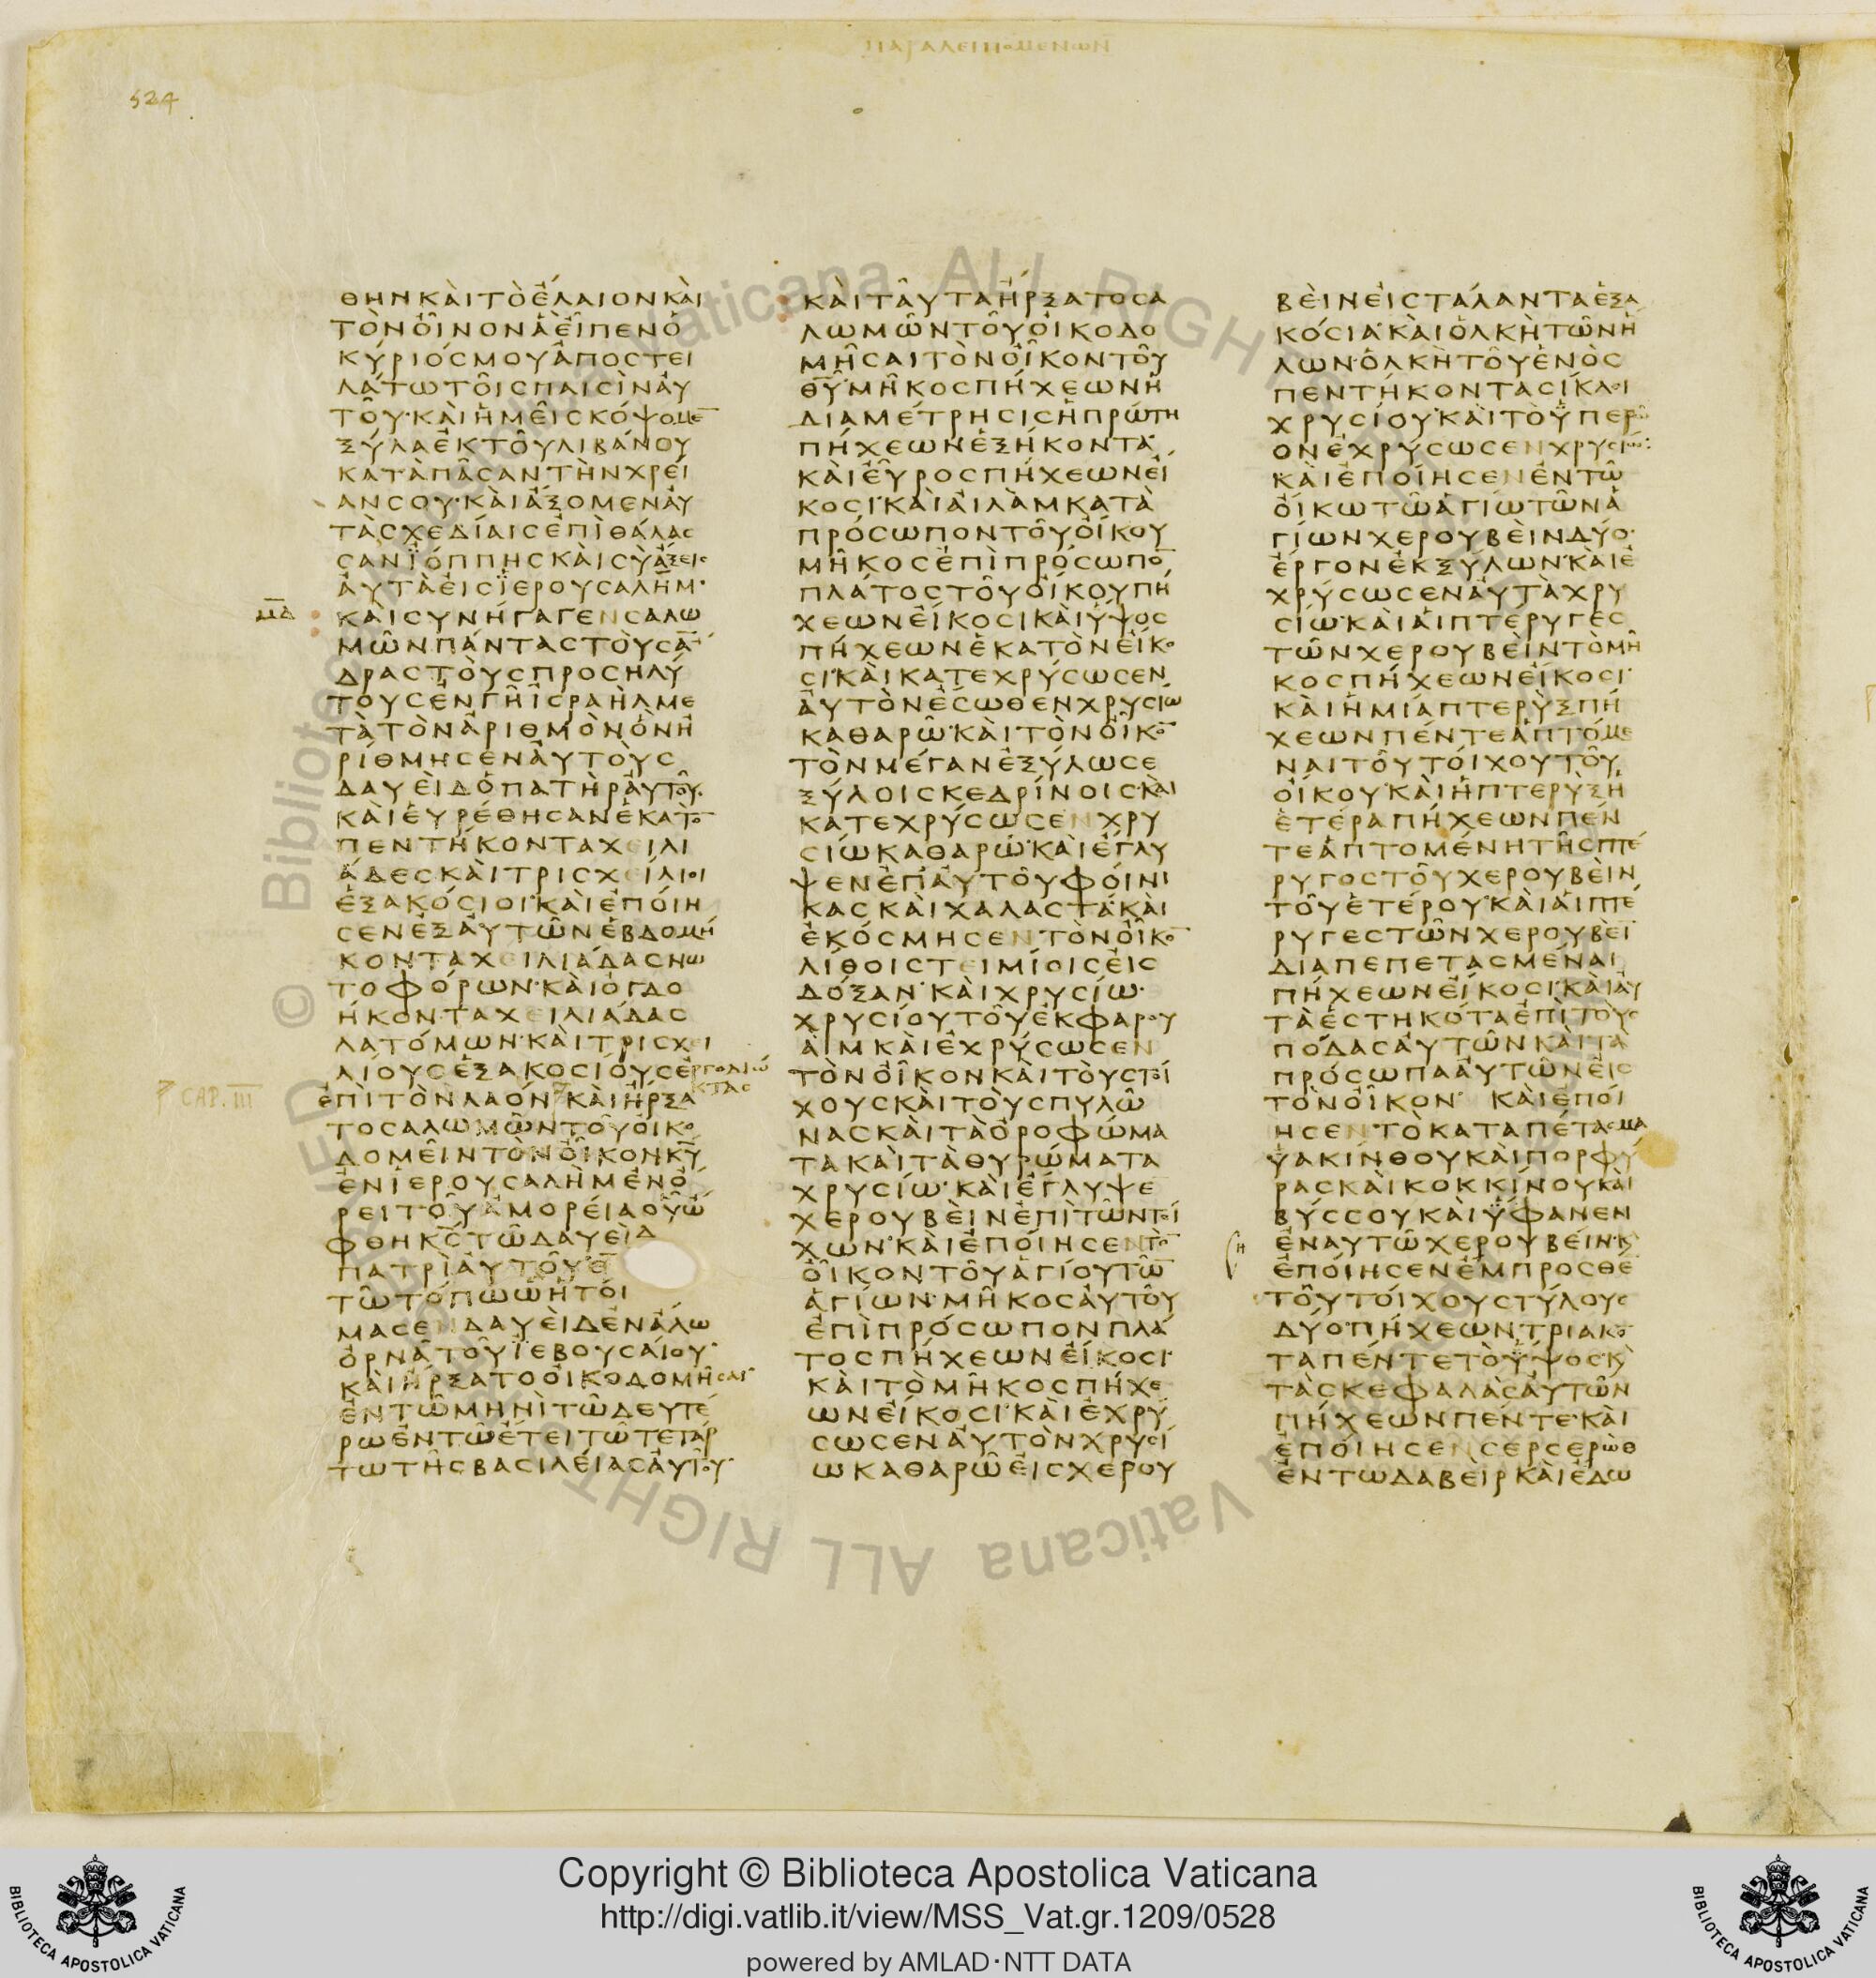 ΠΑΡΑΛΕΙΠΟΜΕΝΩΝ
524
ΘΗΝΚΑὶΤὸἔΛΑΙΟΝΚΑὶ
ΤὸΝΟἶΝΟΝἃΕἶΠΕΝὁ
ΚΎΡΙΌϹΜΟΥἈΠΟϹΤΕΙ
ΛΆΤΩΤΟῖϹΠΑΙϹὶΝΑὐ
ΤΟῦ·ΚΑὶἩΜΕῖϹΚΌΨΟΜΕ̅
ΞΎΛΑἐΚΤΟῦΛΙΒΆΝΟΥ
ΚΑΤὰΠᾶϹΑΝΤὴΝΧΡΕΊ
ΑΝϹΟΥ·ΚΑὶἄΞΟΜΕΝΑὐ
ΤὰϹΧΕΔΊΑΙϹἐΠὶΘΆΛΑϹ
ϹΑΝἸΌΠΠΗϹΚΑὶϹῪἄΞΕΙϹ
ΑὐΤὰΕἰϹἸΕΡΟΥϹΑΛΉΜ·
μ̅α̅ ΚΑὶϹΥΝΉΓΑΓΕΝϹΑΛΩ
ΜῺΝΠΆΝΤΑϹΤΟὺϹἄ̅
ΔΡΑϹΤΟὺϹΠΡΟϹΗΛΎ
ΤΟΥϹἐΝΓῆἸϹΡΑὴΛΜΕ
ΤὰΤὸΝἀΡΙΘΜὸΝὃΝἠ
ΡΊΘΜΗϹΕΝΑὐΤΟὺϹ
ΔΑΥΕὶΔὁΠΑΤὴΡΑὐΤΟῦ·
ΚΑὶΕὑΡΈΘΗϹΑΝἑΚΑΤὸ̅
ΠΕΝΤΉΚΟΝΤΑΧΕΙΛΙ
ΆΔΕϹΚΑὶΤΡΙϹΧΕΊΛΙΟΙ
ἑΞΑΚΌϹΙΟΙ·ΚΑὶἐΠΟΊΗ
ϹΕΝἐΞΑὐΤῶΝἑΒΔΟΜΉ
ΚΟΝΤΑΧΕΙΛΙΆΔΑϹΝΩ
ΤΟΦΌΡΩΝ·ΚΑὶὈΓΔΟ
ΉΚΟΝΤΑΧΕΙΛΙΆΔΑϹ
ΛΑΤΌΜΩΝ·ΚΑὶΤΡΙϹΧΕΙ
ΛΊΟΥϹἑΞΑΚΟϹΊΟΥϹἐΡΓΟΔΙΏ
ΚΤΑϹ
ἐΠὶΤὸΝΛΑΌΝ ΚΑὶἬΡΞΑ
CAP. III
ΤΟϹΑΛΩΜῺΝΤΟῦΟἰΚΟ
ΔΟΜΕῖΝΤὸΝΟἶΚΟΝΚ̅Υ̅
ἐΝἸΕΡΟΥϹΑΛὴΜἐΝὌ
ΡΕΙΤΟῦἈΜΟΡΕΊΑΟΥ͂Ὤ
ΦΘΗΚ̅Ϲ̅ΤῷΔΑΥΕὶΔ
ΠΑΤΡὶΑὐΤΟῦἐ̅
ΤῷΤΌΠΩῼἩΤΟΊ
ΜΑϹΕΝΔΑΥΕὶΔἐΝἍΛΩ
ὈΡΝᾶΤΟῦἸΕΒΟΥϹΑΊΟΥ·
ΚΑὶἬΡΞΑΤΟΟἰΚΟΔΟΜῆϹΑΙ·
ἐΝΤῷΜΗΝὶΤῷΔΕΥΤΈ
ΡΩἐΝΤῷἔΤΕΙΤῷΤΕΤΆΡ
ΤΩΤῆϹΒΑϹΙΛΕΊΑϹΑὐΤΟῦ·
ΚΑὶΤΑῦΤΑἬΡΞΑΤΟϹΑ
ΛΩΜῺΝΤΟῦΟἰΚΟΔΟ
ΜῆϹΑΙΤὸΝΟἶΚΟΝΤΟῦ
Θ̅Υ̅·ΜῆΚΟϹΠΉΧΕΩΝἩ
ΔΙΑΜΈΤΡΗϹΙϹἩΠΡΏΤΗ
ΠΉΧΕΩΝἑΞΉΚΟΝΤΑ·
ΚΑὶΕὖΡΟϹΠΉΧΕΩΝΕἴ
ΚΟϹΙ·ΚΑὶΑἰΛὰΜΚΑΤὰ
ΠΡΌϹΩΠΟΝΤΟῦΟἴΚΟΥ
ΜῆΚΟϹἐΠὶΠΡΌϹΩΠΟ̅
ΠΛΆΤΟϹΤΟῦΟἴΚΟΥΠΉ
ΧΕΩΝΕἴΚΟϹΙΚΑὶὝΨΟϹ
ΠΉΧΕΩΝἑΚΑΤὸΝΕἴΚΟ
ϹΙ·ΚΑὶΚΑΤΕΧΡΎϹΩϹΕΝ
ΑὐΤὸΝἔϹΩΘΕΝΧΡΥϹΊΩ
ΚΑΘΑΡῷ·ΚΑὶΤὸΝΟἶΚΟ̅
ΤὸΝΜΈΓΑΝἐΞΎΛΩϹΕ
ΞΎΛΟΙϹΚΕΔΡΊΝΟΙϹΚΑὶ
ΚΑΤΕΧΡΎϹΩϹΕΝΧΡΥ
ϹΊΩΚΑΘΑΡῷ·ΚΑὶἔΓΛΥ
ΨΕΝἐΠΑὐΤΟῦΦΟΊΝΙ
ΚΑϹΚΑὶΧΑΛΑϹΤΆΚΑὶ
ἐΚΌϹΜΗϹΕΝΤὸΝΟἶΚΟ̅
ΛΊΘΟΙϹΤΕΙΜΊΟΙϹΕἰϹ
ΔΌΞΑΝ·ΚΑὶΧΡΥϹΊΩ·
ΧΡΥϹΊΟΥΤΟῦἐΚΦΑΡΟΥ
ΑὶΜΚΑὶἐΧΡΎϹΩϹΕΝ
ΤὸΝΟἶΚΟΝΚΑὶΤΟὺϹΤΟΊ
ΧΟΥϹΚΑὶΤΟὺϹΠΥΛῶ
ΝΑϹΚΑὶΤὰὈΡΟΦΏΜΑ
ΤΑΚΑὶΤὰΘΥΡΏΜΑΤΑ
ΧΡΥϹΊΩ·ΚΑὶἔΓΛΥΨΕ
ΧΕΡΟΥΒΕὶΝἐΠὶΤῶΝΤΟΊ
ΧΩΝ·ΚΑὶἐΠΟΊΗϹΕΝΤὸ̅
ΟἶΚΟΝΤΟῦἉΓΊΟΥΤῶ̅
ἉΓΊΩΝ·ΜῆΚΟϹΑὐΤΟῦ
ἐΠὶΠΡΌϹΩΠΟΝΠΛΆ
ΤΟϹΠΉΧΕΩΝΕἴΚΟϹΙ·
ΚΑὶΤὸΜῆΚΟϹΠΉΧΕ
ΩΝΕἴΚΟϹΙ·ΚΑὶἐΧΡΎ
ϹΩϹΕΝΑὐΤὸΝΧΡΥϹΊ
ΩΚΑΘΑΡῷΕἰϹΧΕΡΟΥ
ΒΕὶΝΕἰϹΤΆΛΑΝΤΑἑΞΑ
ΚΌϹΙΑ·ΚΑὶὉΛΚὴΤῶΝἭ
ΛΩΝ·ὉΛΚὴΤΟῦἑΝὸϹ
ΠΕΝΤΉΚΟΝΤΑϹΊΚΛΟΙ
ΧΡΥϹΊΟΥ·ΚΑὶΤὸὙΠΕΡῷ
ΟΝἐΧΡΎϹΩϹΕΝΧΡΥϹΊΩ:
ΚΑὶἐΠΟΊΗϹΕΝἐΝΤῷ
ΟἴΚΩΤῷἉΓΊΩΤῶΝἉ
ΓΊΩΝΧΕΡΟΥΒΕὶΝΔΎΟ·
ἔΡΓΟΝἐΚΞΎΛΩΝ·ΚΑὶἐ
ΧΡΎϹΩϹΕΝΑὐΤὰΧΡΥ
ϹΊΩ·ΚΑὶΑἱΠΤΈΡΥΓΕϹ
ΤῶΝΧΕΡΟΥΒΕὶΝΤὸΜῆ
ΚΟϹΠΉΧΕΩΝΕἴΚΟϹΙ·
ΚΑὶἩΜΊΑΠΤΕΡΥΞΠΉ
ΧΕΩΝΠΈΝΤΕἉΠΤΟΜΕ
ΝΑΙΤΟῦΤΟΊΧΟΥΤΟῦ
ΟἴΚΟΥ·ΚΑὶἩΠΤΕΡΥΞἩ
ἑΤΈΡΑΠΉΧΕΩΝΠΕΝ
ΤΕἉΠΤΟΜΈΝΗΤῆϹΠΤΕ
ΡΥΓΟϹΤΟῦΧΕΡΟΥΒΕὶΝ
ΤΟῦἑΤΈΡΟΥ·ΚΑὶΑἱΠΤΕ
ΡΥΓΕϹΤῶΝΧΕΡΟΥΒΕὶ̅
ΔΙΑΠΕΠΕΤΑϹΜΈΝΑΙ
ΠΉΧΕΩΝΕἴΚΟϹΙ·ΚΑὶΑὐ
ΤὰἑϹΤΗΚΌΤΑἐΠὶΤΟὺϹ
ΠΌΔΑϹΑὐΤῶΝΚΑὶΤὰ
ΠΡΌϹΩΠΑΑὐΤῶΝΕἰϹ
ΤὸΝΟἶΚΟΝ· ΚΑὶἐΠΟΊ
ΗϹΕΝΤὸΚΑΤΑΠΈΤΑϹΜΑ
ὙΑΚΊΝΘΟΥΚΑὶΠΟΡΦΎ
ΡΑϹΚΑὶΚΟΚΚΊΝΟΥΚΑὶ
ΒΎϹϹΟΥΚΑὶὝΦΑΝΕΝ
Η ἐΝΑΥΤῷΧΕΡΟΥΒΕΊΝ·Κ
ἐΠΟΊΗϹΕΝἔΜΠΡΟϹΘΕ̅
ΤΟῦΤΟΊΧΟΥϹΤΎΛΟΥϹ
ΔΎΟ·ΠΉΧΕΩΝΤΡΙΑΚΟ̅
ΤΑΠΈΝΤΕΤὸὝΨΟϹ·Κ
ΤὰϹΚΕΦΑΛὰϹΑὐΤῶΝ
ΠΉΧΕΩΝΠΈΝΤΕ·ΚΑὶ
ἐΠΟΊΗϹΕΝϹΕΡϹΕΡῺΘ
ἐΝΤΩΔΑΒΕὶΡΚΑὶἔΔΩ
Copyright © Biblioteca Apostolica Vaticana
http://digi.vatlib.it/view/MSS_Vat.gr.1209/0528
powered by AMLAD·NTT DATA
BIBLIOTECA APOSTOLICA VATICANA
BIBLIOTECA APOSTOLICA VATICANA